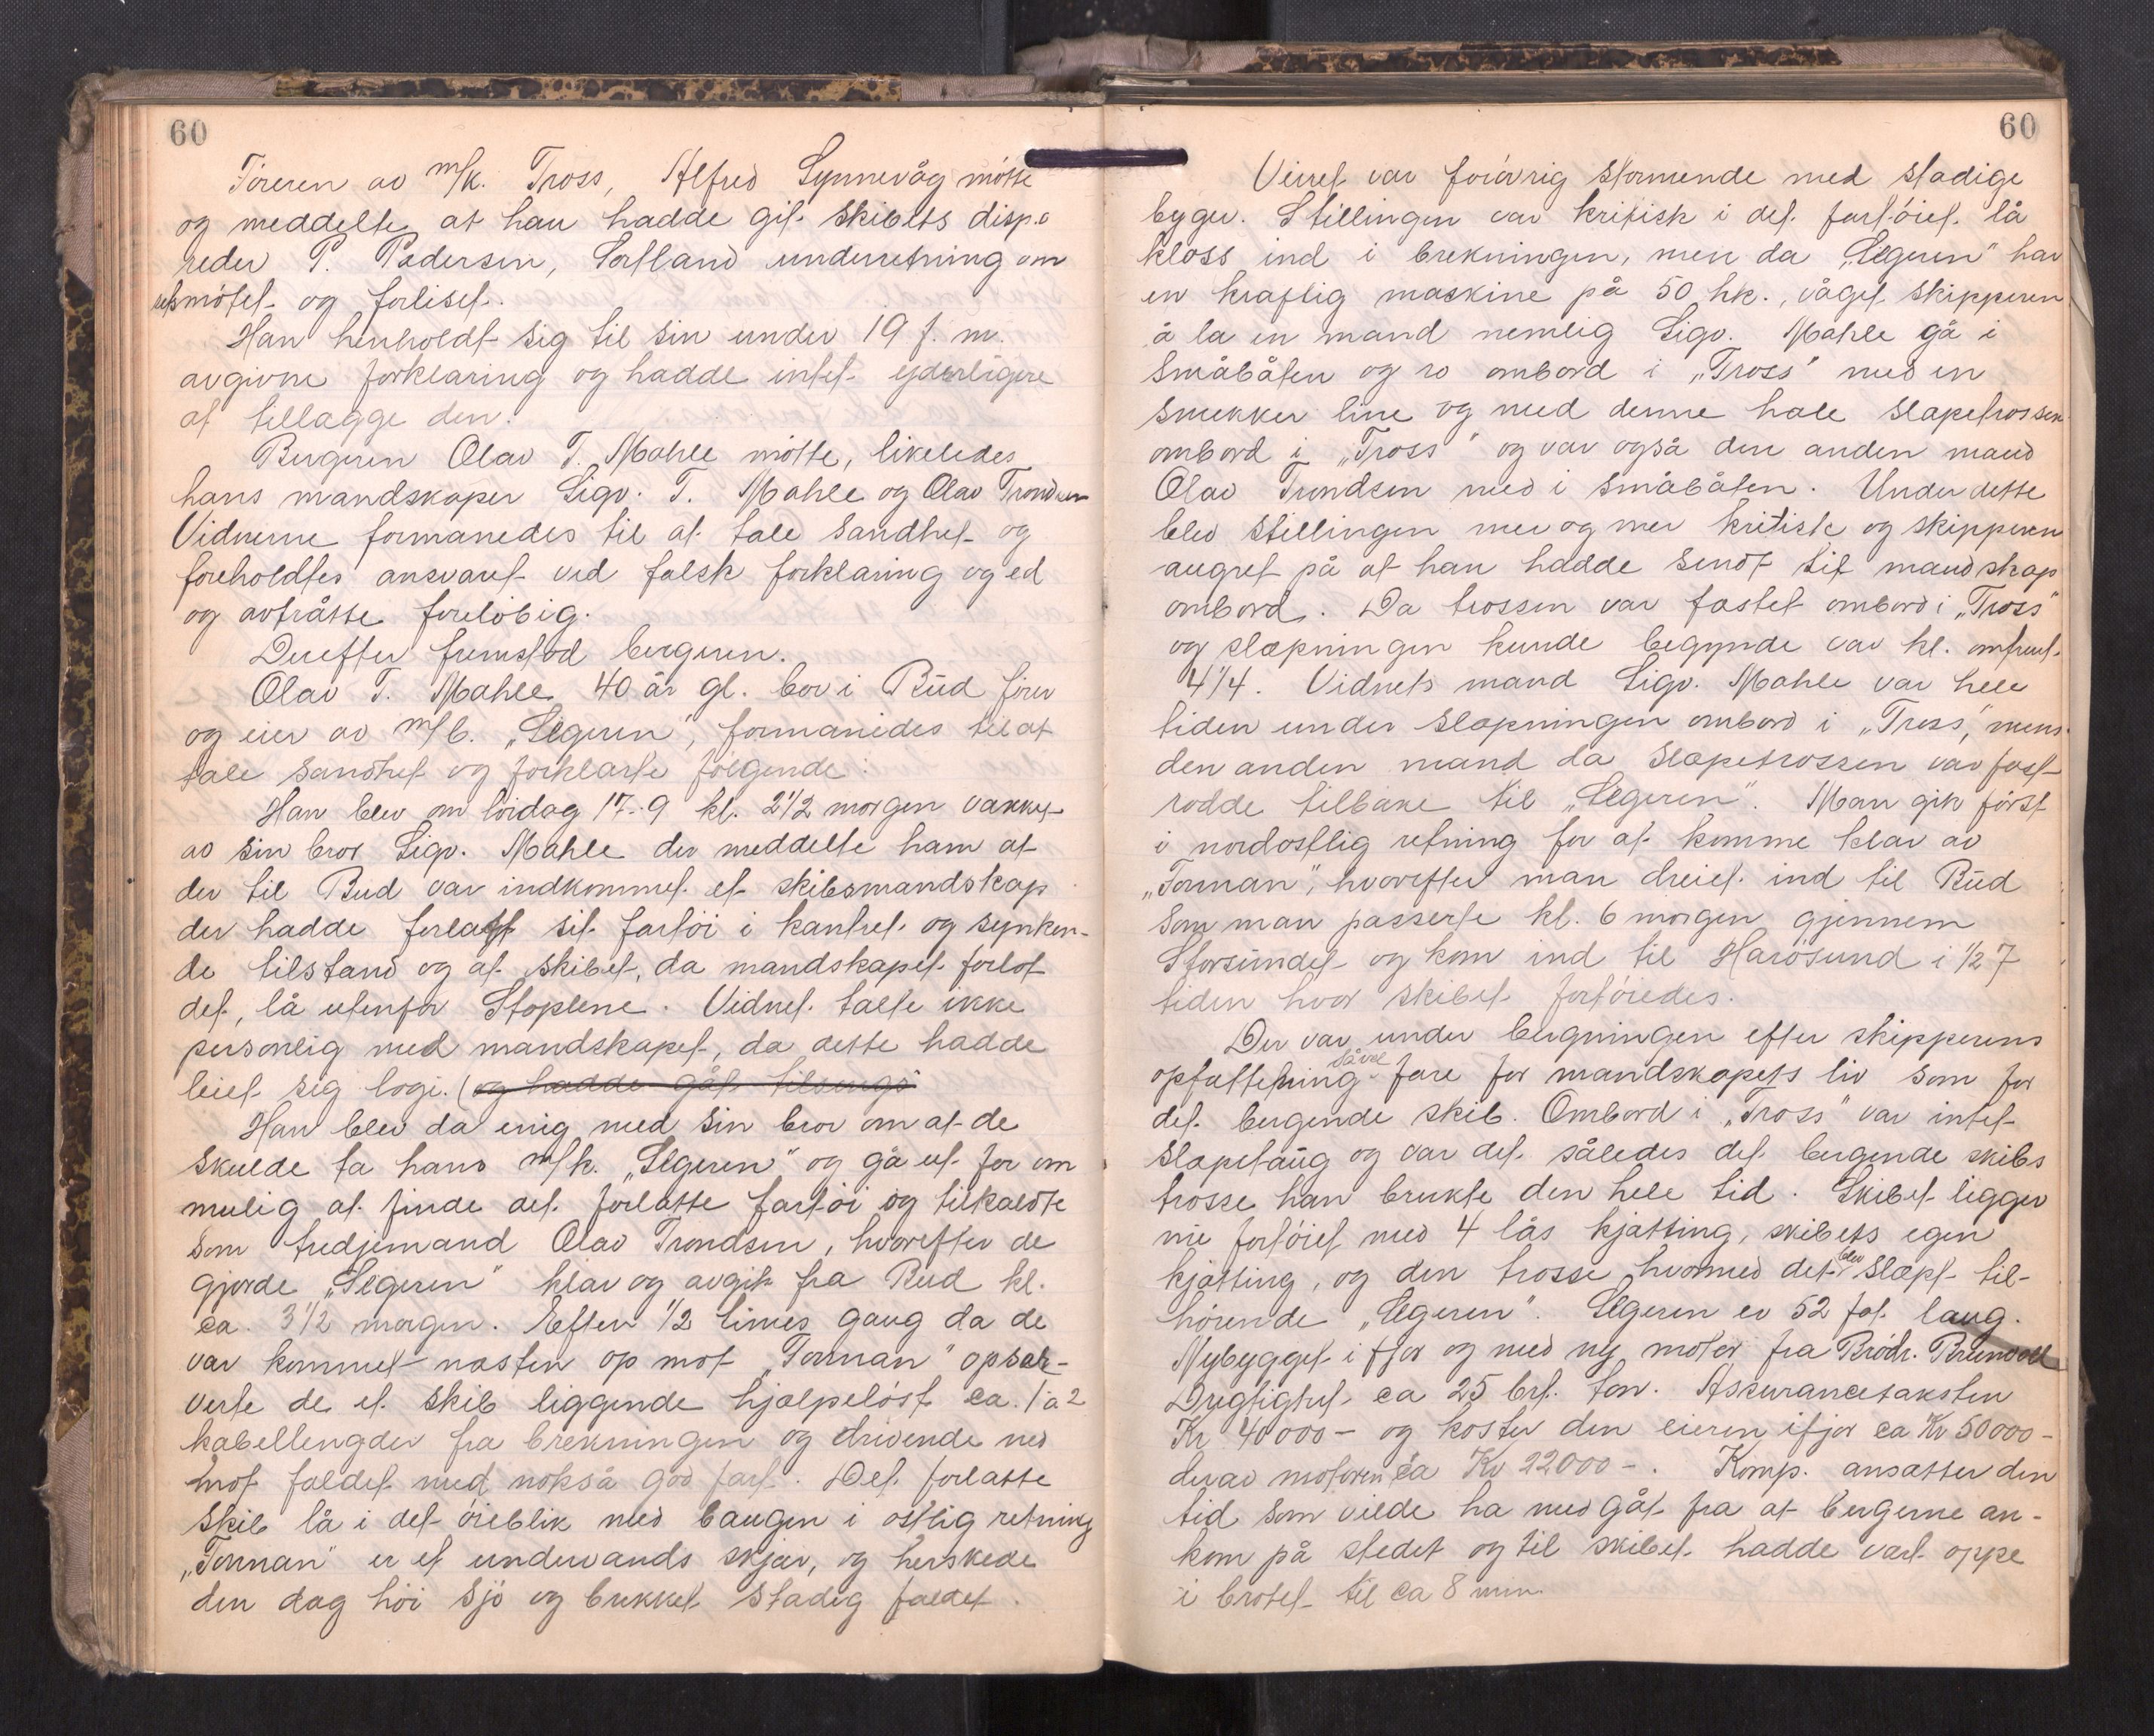 60
Föreren av m/k. Tross, Alfred Synnevåg mötte
og meddelte at han hadde git skibets disp.
reder P. Pedersen, Sortland underretning om
retsmötet og forliset.
Han henholdt sig til sin under 19 f. m.
avgivne forklaring og hadde intet yderligere
at tillægge den.
Bergeren Olav T. Mahle mötte, likeledes
hans mandskaper Sigv. T. Mahle og Olav Trondsen
Vidnerne formanedes til at tale sandhet og
foreholdtes ansvaret ved falsk forklaring og ed
og avtråtte foreløbig.
Derefter fremstod bergeren.
Olav T. Mahle 40 år gl. bor i Bud fører
og eier av m/b. „Segeren", formanedes til at
tale sandhet og forklarte fölgende:
Han blev om lördag 17-9 kl. 2 1/2 morgen vækket
av sin bror Sigv. Mahle der meddelte ham at
der til Bud var indkommet et skibsmandskap
der hadde forlatt sit fartöi i kantret og synken-
de tilstand og at skibet, da mandskapet forlot
det, lå utenfor Stoplene. Vidnet talte ikke
personlig med mandskapet, da dette hadde
leiet sig logi. (og hadde gåt tilsengs
Han blev da enig med sin bror om at de
skulde ta hans m/k. „Segeren" og gå ut for om
mulig at finde det forlatte fartöi og tilkaldte
som tredjemand Olav Trondsen, hvorefter de
gjorde „Segeren" klar og avgik fra Bud kl.
ca. 3 1/2 morgen. Efter 1/2 times gang da de
var kommet næsten op mot „Tornan" obser-
verte de et skib liggende hjælpelöst ca. 1 à 2
kabellengder fra brekningen og drivende ned
mot faldet med nokså god fart. Det forlatte
skib lå i det öieblik med baugen i østlig retning
„Tornan" er et undervands skjær, og herskede
den dag höi sjö og brækket stadig faldet.
60
Veiret var forövrig stormende med stadige
byger. Stillingen var kritisk i det fartöiet lå
kloss ind i brekningen, men da „Segeren" har
en kraftig maskine på 50 hk., våget skipperen
å la en mand nemlig Sigv. Mahle gå i
småbåten og ro ombord i „Tross" med en
smekker line og med denne hale slæpetrossen
ombord i „Tross" og var også den anden mand
Olav Trondsen med i småbåten. Under dette
blev stillingen mer og mer kritisk og skipperen
angret på at han hadde sendt sit mandskap
ombord. Da trossen var fæstet ombord i „Tross"
og slæpningen kunde begynde var kl. omtrent
4 1/4. Vidnets mand Sigv. Mahle var hele
tiden under slæpningen ombord i „Tross", mens
den anden mand da slæpetrossen var fast
rodde tilbake til „Segeren". Man gik först
i nordostlig retning for at komme klar av
„Tornan", hvorefter man dreiet ind til Bud
som man passerte kl. 6 morgen gjennem
Storsundet og kom ind til Harösund i 1/2 7
tiden hvor skibet fortöiedes.
Der var under bergningen efter skipperens
opfattelning såvel fare for mandskapets liv som for
det bergende skib. Ombord i „Tross" var intet
slæpetaug og var det således det bergende skibs
trosse han brukte den hele tid. Skibet ligger
nu fortöiet med 4 lås kjætting, skibets egen
kjætting, og den trosse hvormed det blev slæpt til-
hörende „Segeren". Segeren er 52 fot lang.
Nybygget i fjor og med ny motor fra Brödr. Brunvoll
Drægtighet ca 25 brt. ton. Assurancetaksten
Kr 40000- og koster den eieren ifjor ca Kr 50000-
derav motoren ca Kr 22000-. Komp. ansætter den
tid som vilde ha medgåt fra at bergerne an-
kom på stedet og til skibet hadde vært oppe
i brotet til ca 8 min.